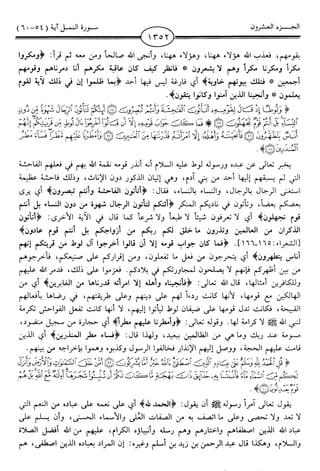 الجـــزء العشرون
سـورة النمل آية (٥٤-٦٠)
١٣٥٢
بقومهم، فعذب الله هؤلاء هنها، وهؤلاء هنها، وأنجى الله صالحاً ومن معه ثم قرأ: ﴿ومكروا
مكراً ومكرنا مكراً وهم لا يشعرون * فانظر كيف كان عاقبة مكرهم أنا دمرناهم وقومهم
أجمعين * فتلك بيوتهم خاوية﴾ أي فارغة ليس فيها أحد ﴿بما ظلموا إن في ذلك لآية لقوم
يعلمون * وأنجينا الذين آمنوا وكانوا يتقون﴾.
يخبر تعالى عن عبده ورسوله لوط عليه السلام أنه أنذر قومه نقمة الله بهم في فعلهم الفاحشة
التي لم يسبقهم إليها أحد من بني آدم، وهي إتيان الذكور دون الإناث، وذلك فاحشة عظيمة
استغنى الرجال بالرجال، والنساء بالنساء، فقال: ﴿أتأتون الفاحشة وأنتم تبصرون﴾ أي يرى
بعضكم بعضاً، وتأتون في ناديكم المنكر ﴿أئنكم لتأتون الرجال شهوة من دون النساء بل أنتم
قوم تجهلون﴾ أي لا تعرفون شيئاً لا طبعاً ولا شرعاً كما قال في الآية الأخرى: ﴿أتأتون
الذكران من العالمين وتذرون ما خلق لكم ربكم من أزواجكم بل أنتم قوم عادون﴾
[الشعراء: ١٦٥-١٦٦]. ﴿فما كان جواب قومه إلا أن قالوا أخرجوا آل لوط من قريتكم إنهم
أناس يتطهرون﴾ أي يتحرجون من فعل ما تفعلون، ومن إقراركم على صنيعكم، فأخرجوهم
من بين أظهركم فإنهم لا يصلحون لمجاورتكم في بلادكم. فعزموا على ذلك، فدمر الله عليهم
وللكافرين أمثالها، قال الله تعالى: ﴿فأنجيناه وأهله إلا امرأته قدرناها من الغابرين﴾ أي من
الهالكين مع قومها، لأنها كانت ردءاً لهم على دينهم وعلى طريقتهم، في رضاها بأفعالهم
القبيحة، فكانت تدل قومها على ضيفان لوط ليأتوا إليهم، لا أنها كانت تفعل الفواحش تكرمة
لنبي الله ﷺ لا كرامة لها. وقوله تعالى: ﴿وأمطرنا عليهم مطراً﴾ أي حجارة من سجيل منضود،
مسومة عند ربك وما هي من الظالمين ببعيد، ولهذا قال: ﴿فساء مطر المنذرين﴾ أي الذين
قامت عليهم الحجة، ووصل إليهم الإنذار فخالفوا الرسول وكذبوه وهموا بإخراجه من بينهم.
يقول تعالى آمراً رسوله ﷺ أن يقول: ﴿الحمد لله﴾ أي على نعمه على عباده من النعم التي
لا تعد ولا تحصى وعلى ما اتصف به من الصفات العُلى والأسماء الحسنى، وأن يسلم على
عباد الله الذين اصطفاهم واختارهم وهم رسله وأنبياؤه الكرام، عليهم من الله أفضل الصلاة
والسلام، وهكذا قال عبد الرحمن بن زيد بن أسلم وغيره: إن المراد بعباده الذين اصطفى، هم